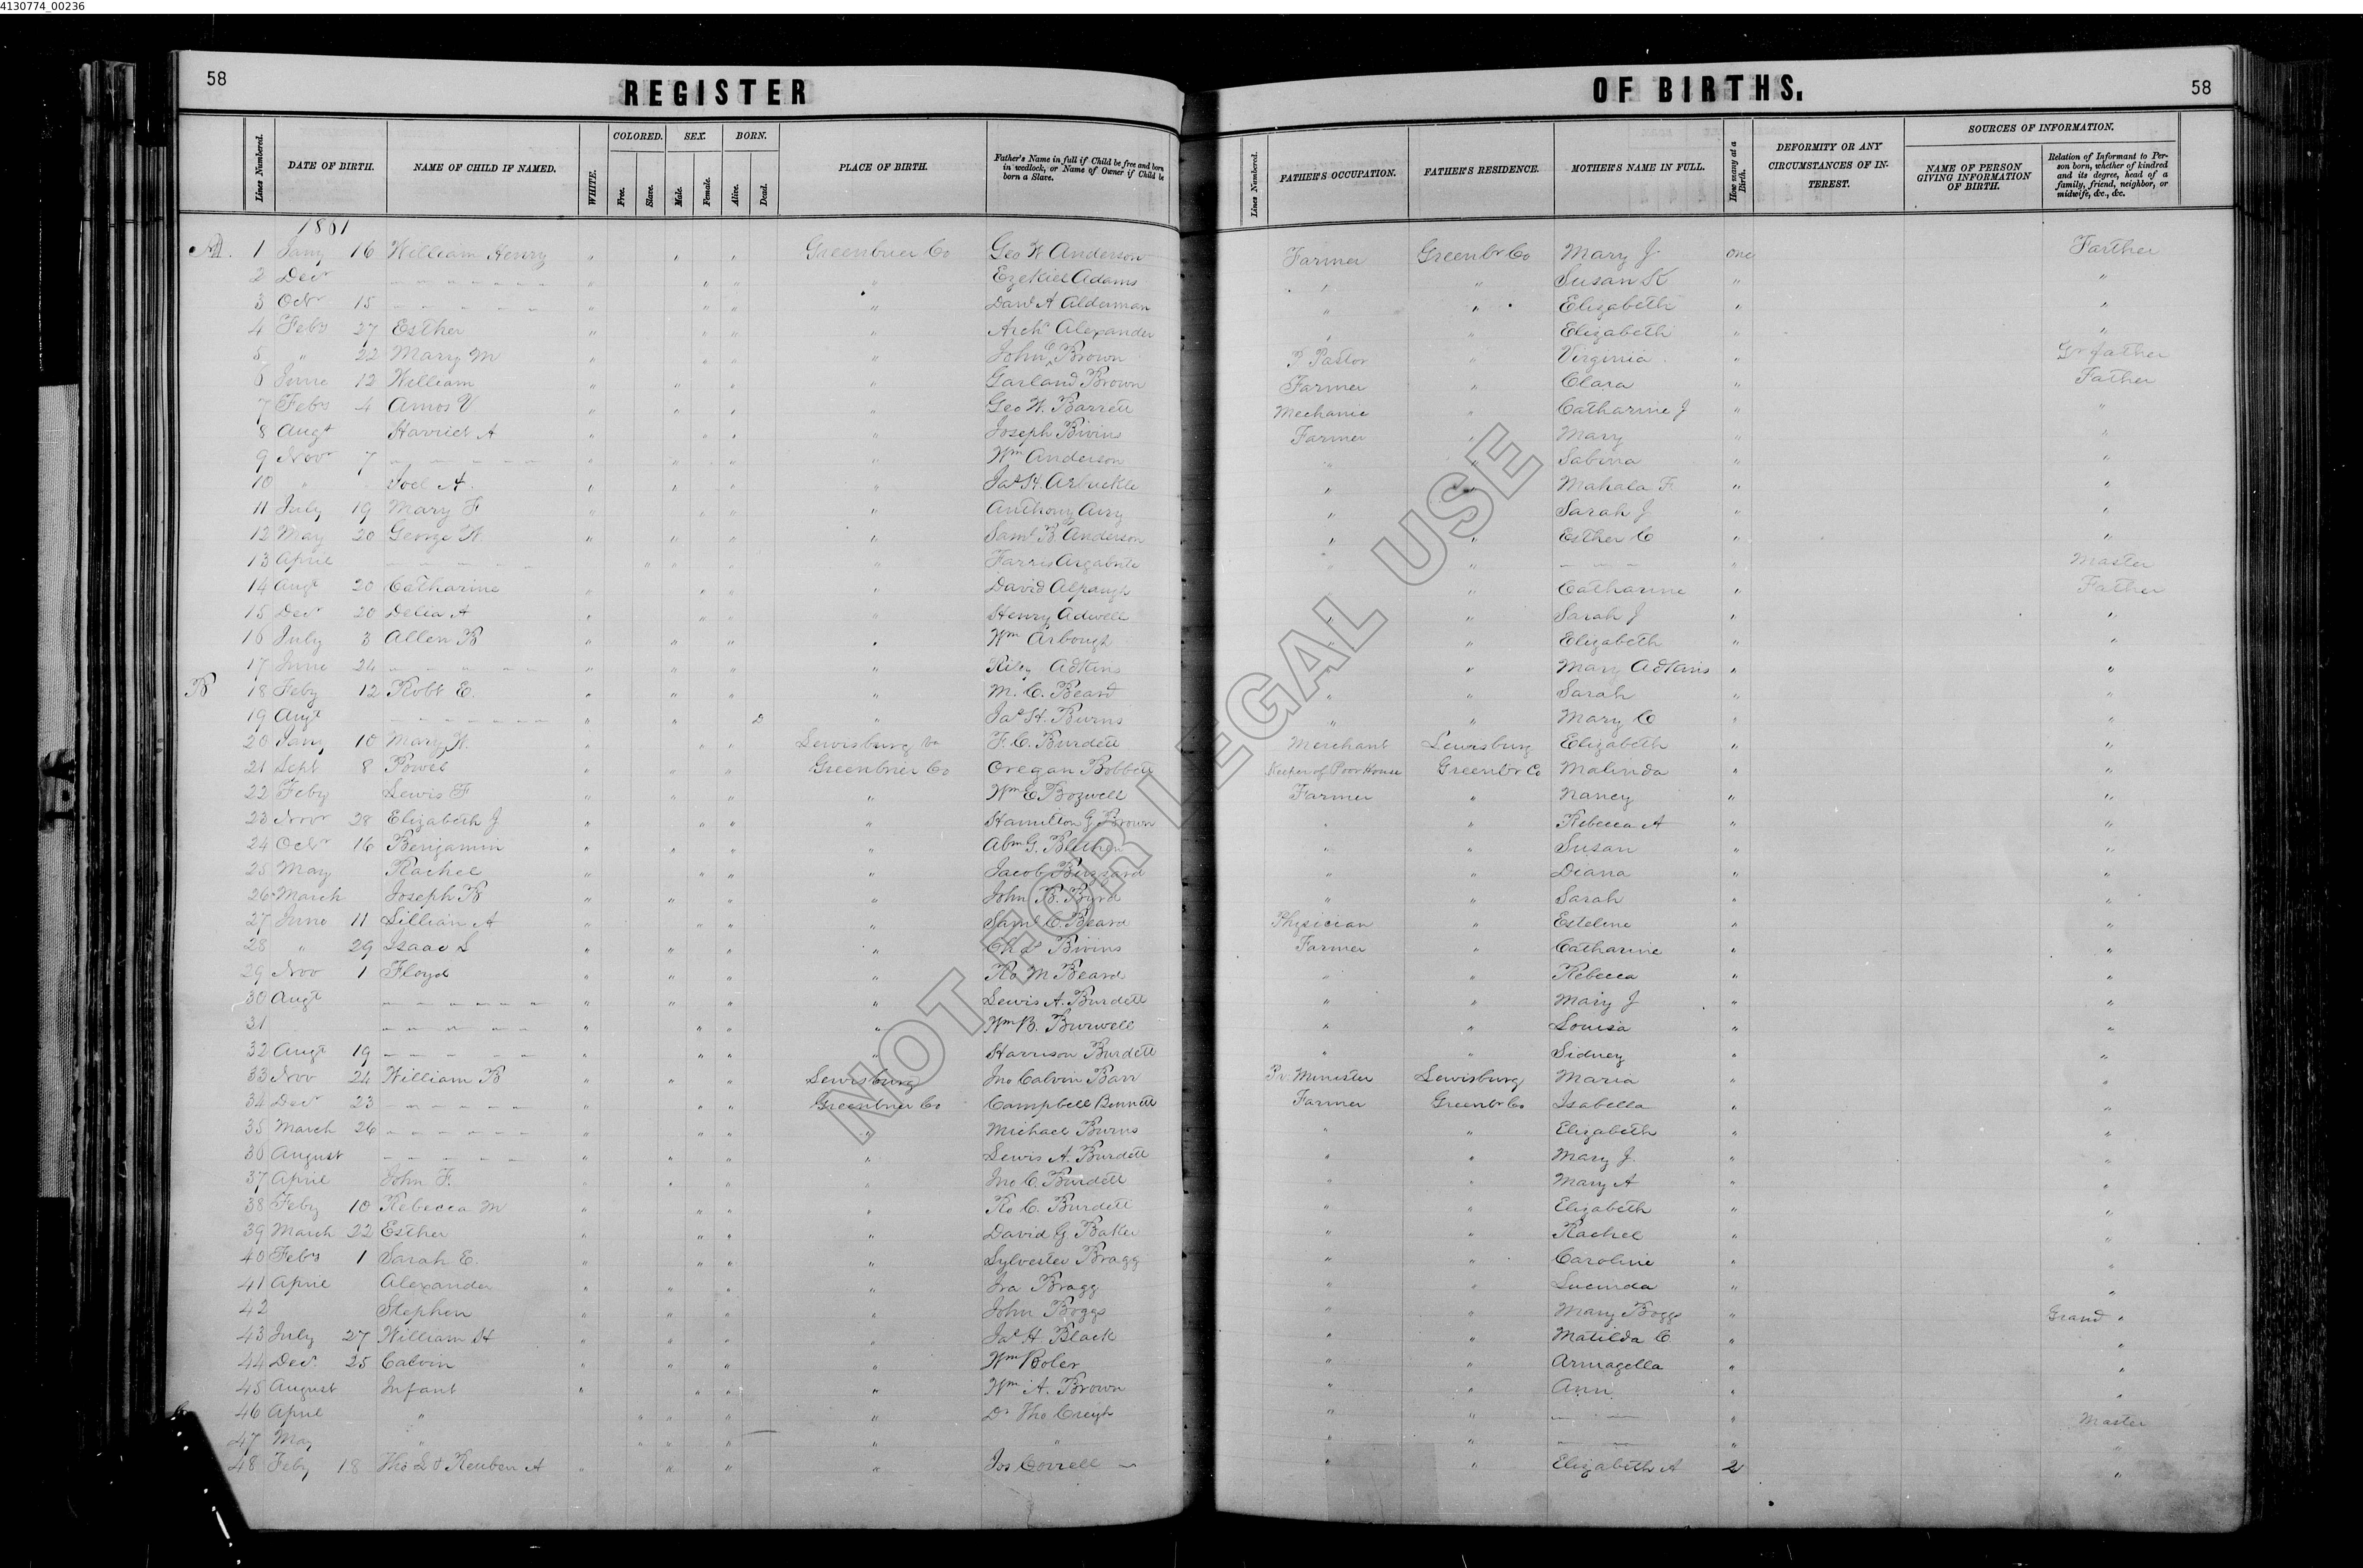 4130774_00236
58
REGISTER
OF BIRTHS.
58
Lines Numbered. DATE OF BIRTH. NAME OF CHILD IF NAMED. WHITE. COLORED. Free. Slave. SEX. Male. Female. BORN. Alive. Dead. PLACE OF BIRTH. Father's Name in full if Child be free and born in wedlock, or Name of Owner if Child be born a Slave. Lines Numbered. FATHER'S OCCUPATION. FATHER'S RESIDENCE. MOTHER'S NAME IN FULL. How many at a Birth. DEFORMITY OR ANY CIRCUMSTANCES OF INTEREST. SOURCES OF INFORMATION. NAME OF PERSON GIVING INFORMATION OF BIRTH. Relation of Informant to Person born, whether of kindred and its degree, head of a family, friend, neighbor, or midwife, &c., &c.
1 Jany 16 William Henry " " " Greenbrier Co Geo W Anderson Farmer Greenbr Co Mary J one Farther
2 Decr — " " " " Ezekiel Adams " " Susan K " "
3 Octr 15 — " " " " David A Alderman " " Elizabeth " "
4 Feby 27 Esther " " " " Archd Alexander " " Elizabeth " "
5 " 22 Mary M " " " " John C Brown Pastor " Virginia " Gr father
6 June 12 William " " " " Garland Brown Farmer " Clara " Father
7 Feby 4 Amos V " " " " Geo W. Barrett Mechanic " Catharine J " "
8 Augt Harriet A " " " " Joseph Bivins Farmer " Mary " "
9 Novr 7 — " " " " Wm Anderson " " Sabina " "
10 " Joel A. " " " " Jas H. Arbuckle " " Mahala F. " "
11 July 19 Mary F " " " " Anthony Airy " " Sarah J " "
12 May 20 George W " " " " Saml B Anderson " " Esther C " "
13 April — " " " " Farris Argabrite " " — " Master
14 Augt 20 Catharine " " " " David Alpaugh " " Catharine " Father
15 Decr 20 Delia A " " " " Henry Adwell " " Sarah J " "
16 July 3 Allen B " " " " Wm Arbough " " Elizabeth " "
17 June 24 — " " " " Riley Adkins " Mary Adkins " "
B 18 Feby 12 Robt E. " " " " M. C. Beard " " Sarah " "
19 Augt — " " D " Jas H. Burns " " Mary C " "
20 Jany 10 Mary W. " " " Lewisburg Va F. C. Burdett Merchant Lewisburg Elizabeth " "
21 Sept 8 Powel " " " Greenbrier Co Oregan Bobbett Keeper of Poor House Greenbr Co Malinda " "
22 Feby Lewis F " " " " Wm E. Bozwell Farmer " Nancy " "
23 Novr 28 Elizabeth J " " " " Hamilton G Brown " " Rebecca A " "
24 Octr 16 Benjamin " " " " Abm G. " " Susan " "
25 May Rachel " " " " Jacob " " Diana " "
26 March Joseph B " " " " John B. Byrd " " Sarah " "
27 June 11 Lillian A " " " " Saml C. Beard Physician " Esteline " "
28 " 29 Isaac L " " " " Chas Bivins Farmer " Catharine " "
29 Nov 1 Floyd " " " " Ro M Beard " " Rebecca " "
30 Augt — " " " " Lewis A. Burdett " " Mary J " "
31 — " " " " Wm B. Burwell " " Louisa " "
32 Augt 19 — " " " " Harrison Burdett " " Sidney " "
33 Nov 24 William B " " " Lewisburg Jno Calvin Barr Pr. Minister Lewisburg Maria " "
34 Decr 23 — " " " Greenbrier Co Campbell Bennett Farmer Greenbr Co Isabella " "
35 March 26 — " " " " Michael Burns " " Elizabeth " "
36 August — " " " " Lewis A. Burdett " " Mary J. " "
37 April John F. " " " " Jno C. Burdett " " Mary A " "
38 Feby 10 Rebecca M " " " " Ro C. Burdett " " Elizabeth " "
39 March 22 Esther " " " " David G Baker " " Rachel " "
40 Feby 1 Sarah E. " " " " Sylvester Bragg " " Caroline " "
41 April Alexander " " " " Ira Bragg " " Lucinda " "
42 Stephen " " " " John Boggs " " Mary Boggs " Grand "
43 July 27 William H " " " " Jas H. Black " " Matilda C. " "
44 Decr. 25 Calvin " " " " Wm Boler " " Armagella " "
45 August Infant " " " " Wm A. Brown " " Ann " "
46 April " " " " " Dr Tho Creigh " " — " Master
47 May " " " " " " " " — " "
48 Feby 18 Tho L & Reuben A " " " " Jos Correll " " Elizabeth A 2 "
NOT FOR LEGAL USE